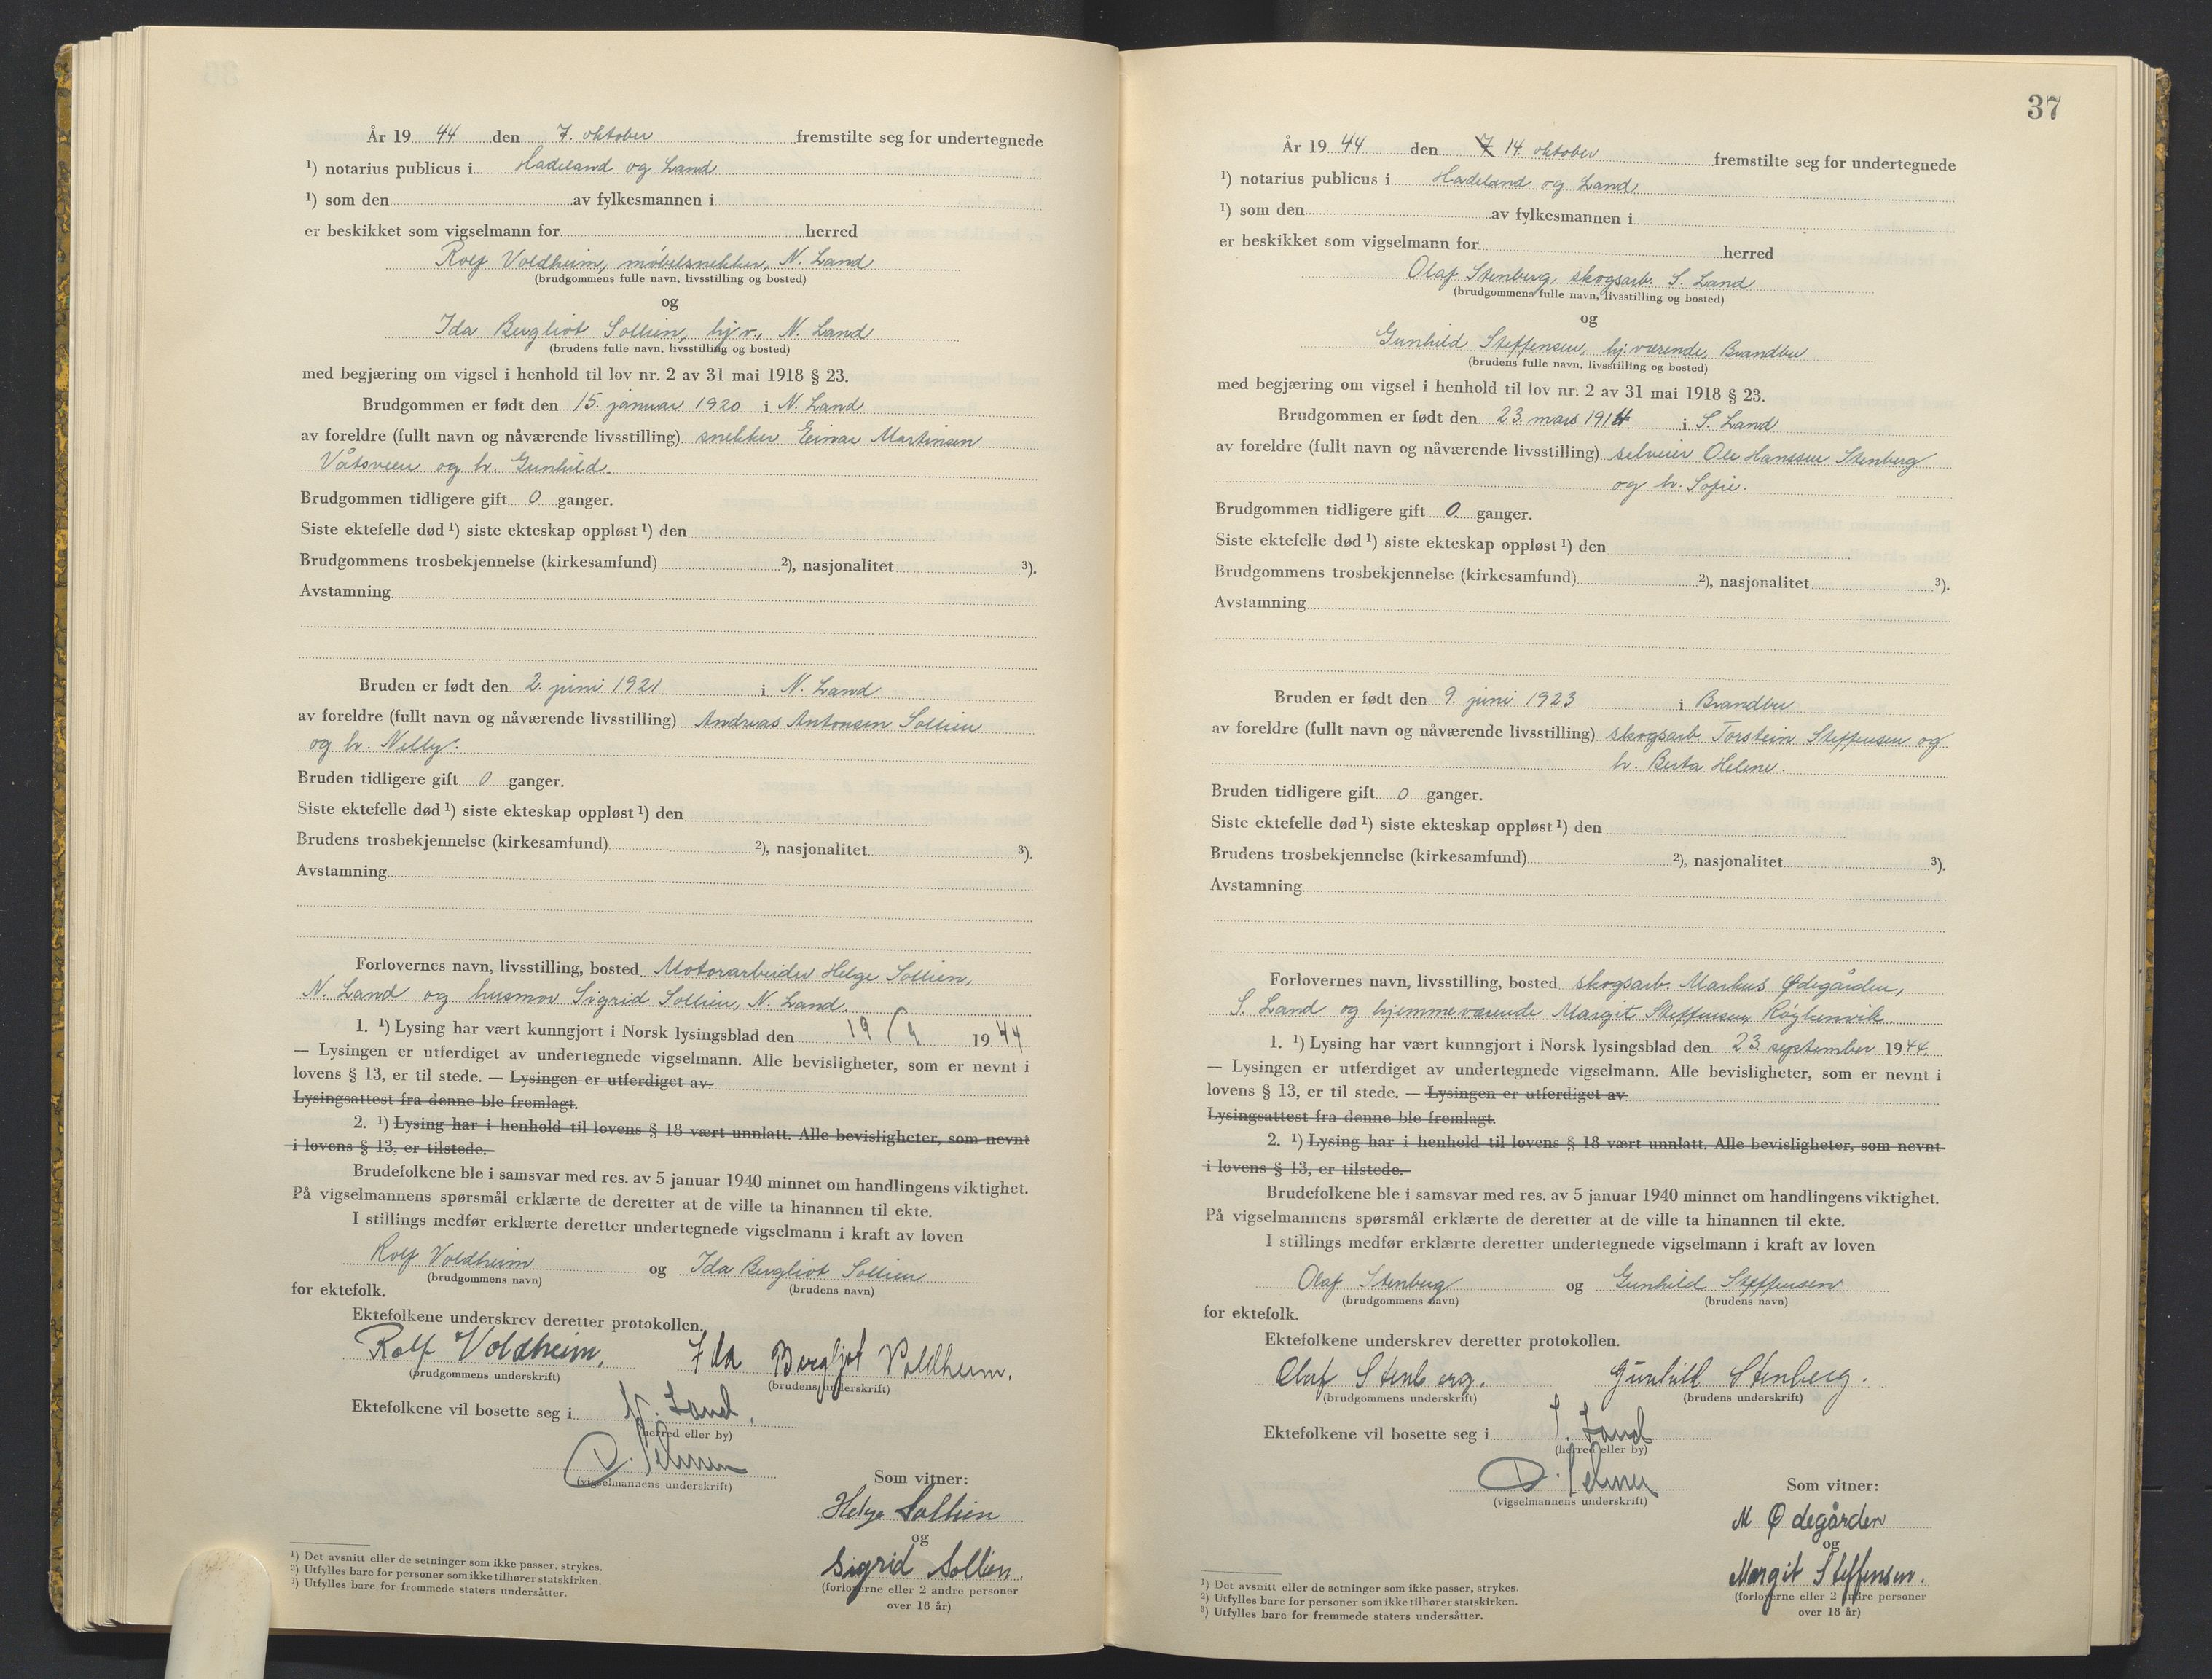 År 19 44 den 7. oktober fremstilte seg for undertegnede
¹) notarius publicus i Hadeland og Land
¹) som den av fylkesmannen i
er beskikket som vigselmann for herred
Rolf Voldheim, møbelsnekker, N. Land
(brudgommens fulle navn, livsstilling og bosted)
og
Ida Bergliot Sollien, hj.v., N. Land
(brudens fulle navn, livsstilling og bosted)
med begjæring om vigsel i henhold til lov nr. 2 av 31 mai 1918 § 23.
Brudgommen er født den 15. januar 1920 i N. Land
av foreldre (fullt navn og nåværende livsstilling) snekker Einar Martinsen
Våtsveen og h. Gunhild.
Brudgommen tidligere gift 0 ganger.
Siste ektefelle død ¹) siste ekteskap oppløst ¹) den
Brudgommens trosbekjennelse (kirkesamfund) ²), nasjonalitet ³).
Avstamning
Bruden er født den 2. juni 1921 i N. Land
av foreldre (fullt navn og nåværende livsstilling) Andreas Antonsen Sollien
og h. Nelly.
Bruden tidligere gift 0 ganger.
Siste ektefelle død ¹) siste ekteskap oppløst ¹) den
Brudens trosbekjennelse (kirkesamfund) ²), nasjonalitet ³).
Avstamning
Forlovernes navn, livsstilling, bosted Motorarbeider Helge Sollien,
N. Land og husmor Sigrid Sollien, N. Land.
1. ¹) Lysing har vært kunngjort i Norsk lysingsblad den 19/9 19 44
— Lysingen er utferdiget av undertegnede vigselmann. Alle bevisligheter, som er nevnt i
lovens § 13, er til stede. — Lysingen er utferdiget av
Lysingsattest fra denne ble fremlagt.
2. ¹) Lysing har i henhold til lovens § 18 vært unnlatt. Alle bevisligheter, som nevnt
i lovens § 13, er tilstede.
Brudefolkene ble i samsvar med res. av 5 januar 1940 minnet om handlingens viktighet.
På vigselmannens spørsmål erklærte de deretter at de ville ta hinannen til ekte.
I stillings medfør erklærte deretter undertegnede vigselmann i kraft av loven
Rolf Voldheim og Ida Bergliot Sollien
(brudgommens navn) (brudens navn)
for ektefolk.
Ektefolkene underskrev deretter protokollen.
Rolf Voldheim, Ida Bergljot Voldheim.
(brudgommens underskrift) (brudens underskrift)
Ektefolkene vil bosette seg i N. Land.
(herred eller by)
(vigselmannens underskrift)
Som vitner:
Helge Sollien
og
Sigrid Sollien.
(forloverne eller 2 andre personer
over 18 år)
¹) Det avsnitt eller de setninger som ikke passer, strykes.
²) Utfylles bare for personer som ikke tilhører statskirken.
³) Utfylles bare for fremmede staters undersåtter.
37
År 19 44 den 7 14. oktober fremstilte seg for undertegnede
¹) notarius publicus i Hadeland og Land
¹) som den av fylkesmannen i
er beskikket som vigselmann for herred
Olaf Stenberg, skogsarb. S. Land
(brudgommens fulle navn, livsstilling og bosted)
og
Gunhild Steffensen, hj.værende, Brandbu
(brudens fulle navn, livsstilling og bosted)
med begjæring om vigsel i henhold til lov nr. 2 av 31 mai 1918 § 23.
Brudgommen er født den 23. mars 1914 i S. Land
av foreldre (fullt navn og nåværende livsstilling) selveier Ole Hanssen Stenberg
og h. Sofie.
Brudgommen tidligere gift 0 ganger.
Siste ektefelle død ¹) siste ekteskap oppløst ¹) den
Brudgommens trosbekjennelse (kirkesamfund) ²), nasjonalitet ³).
Avstamning
Bruden er født den 9. juni 1923 i Brandbu
av foreldre (fullt navn og nåværende livsstilling) skogsarb. Torstein Steffensen og
h. Berta Helene.
Bruden tidligere gift 0 ganger.
Siste ektefelle død ¹) siste ekteskap oppløst ¹) den
Brudens trosbekjennelse (kirkesamfund) ²), nasjonalitet ³).
Avstamning
Forlovernes navn, livsstilling, bosted skogsarb. Markus Ødegården,
S. Land og hjemmeværende Margit Steffensen, Røykenvik.
1. ¹) Lysing har vært kunngjort i Norsk lysingsblad den 23. september 1944.
— Lysingen er utferdiget av undertegnede vigselmann. Alle bevisligheter, som er nevnt i
lovens § 13, er til stede. — Lysingen er utferdiget av
Lysingsattest fra denne ble fremlagt.
2. ¹) Lysing har i henhold til lovens § 18 vært unnlatt. Alle bevisligheter, som nevnt
i lovens § 13, er tilstede.
Brudefolkene ble i samsvar med res. av 5 januar 1940 minnet om handlingens viktighet.
På vigselmannens spørsmål erklærte de deretter at de ville ta hinannen til ekte.
I stillings medfør erklærte deretter undertegnede vigselmann i kraft av loven
Olaf Stenberg og Gunhild Steffensen
(brudgommens navn) (brudens navn)
for ektefolk.
Ektefolkene underskrev deretter protokollen.
Olaf Stenberg. Gunhild Stenberg.
(brudgommens underskrift) (brudens underskrift)
Ektefolkene vil bosette seg i S. Land
(herred eller by)
(vigselmannens underskrift)
Som vitner:
M Ødegården
og
Margit Steffensen.
(forloverne eller 2 andre personer
over 18 år)
¹) Det avsnitt eller de setninger som ikke passer, strykes.
²) Utfylles bare for personer som ikke tilhører statskirken.
³) Utfylles bare for fremmede staters undersåtter.